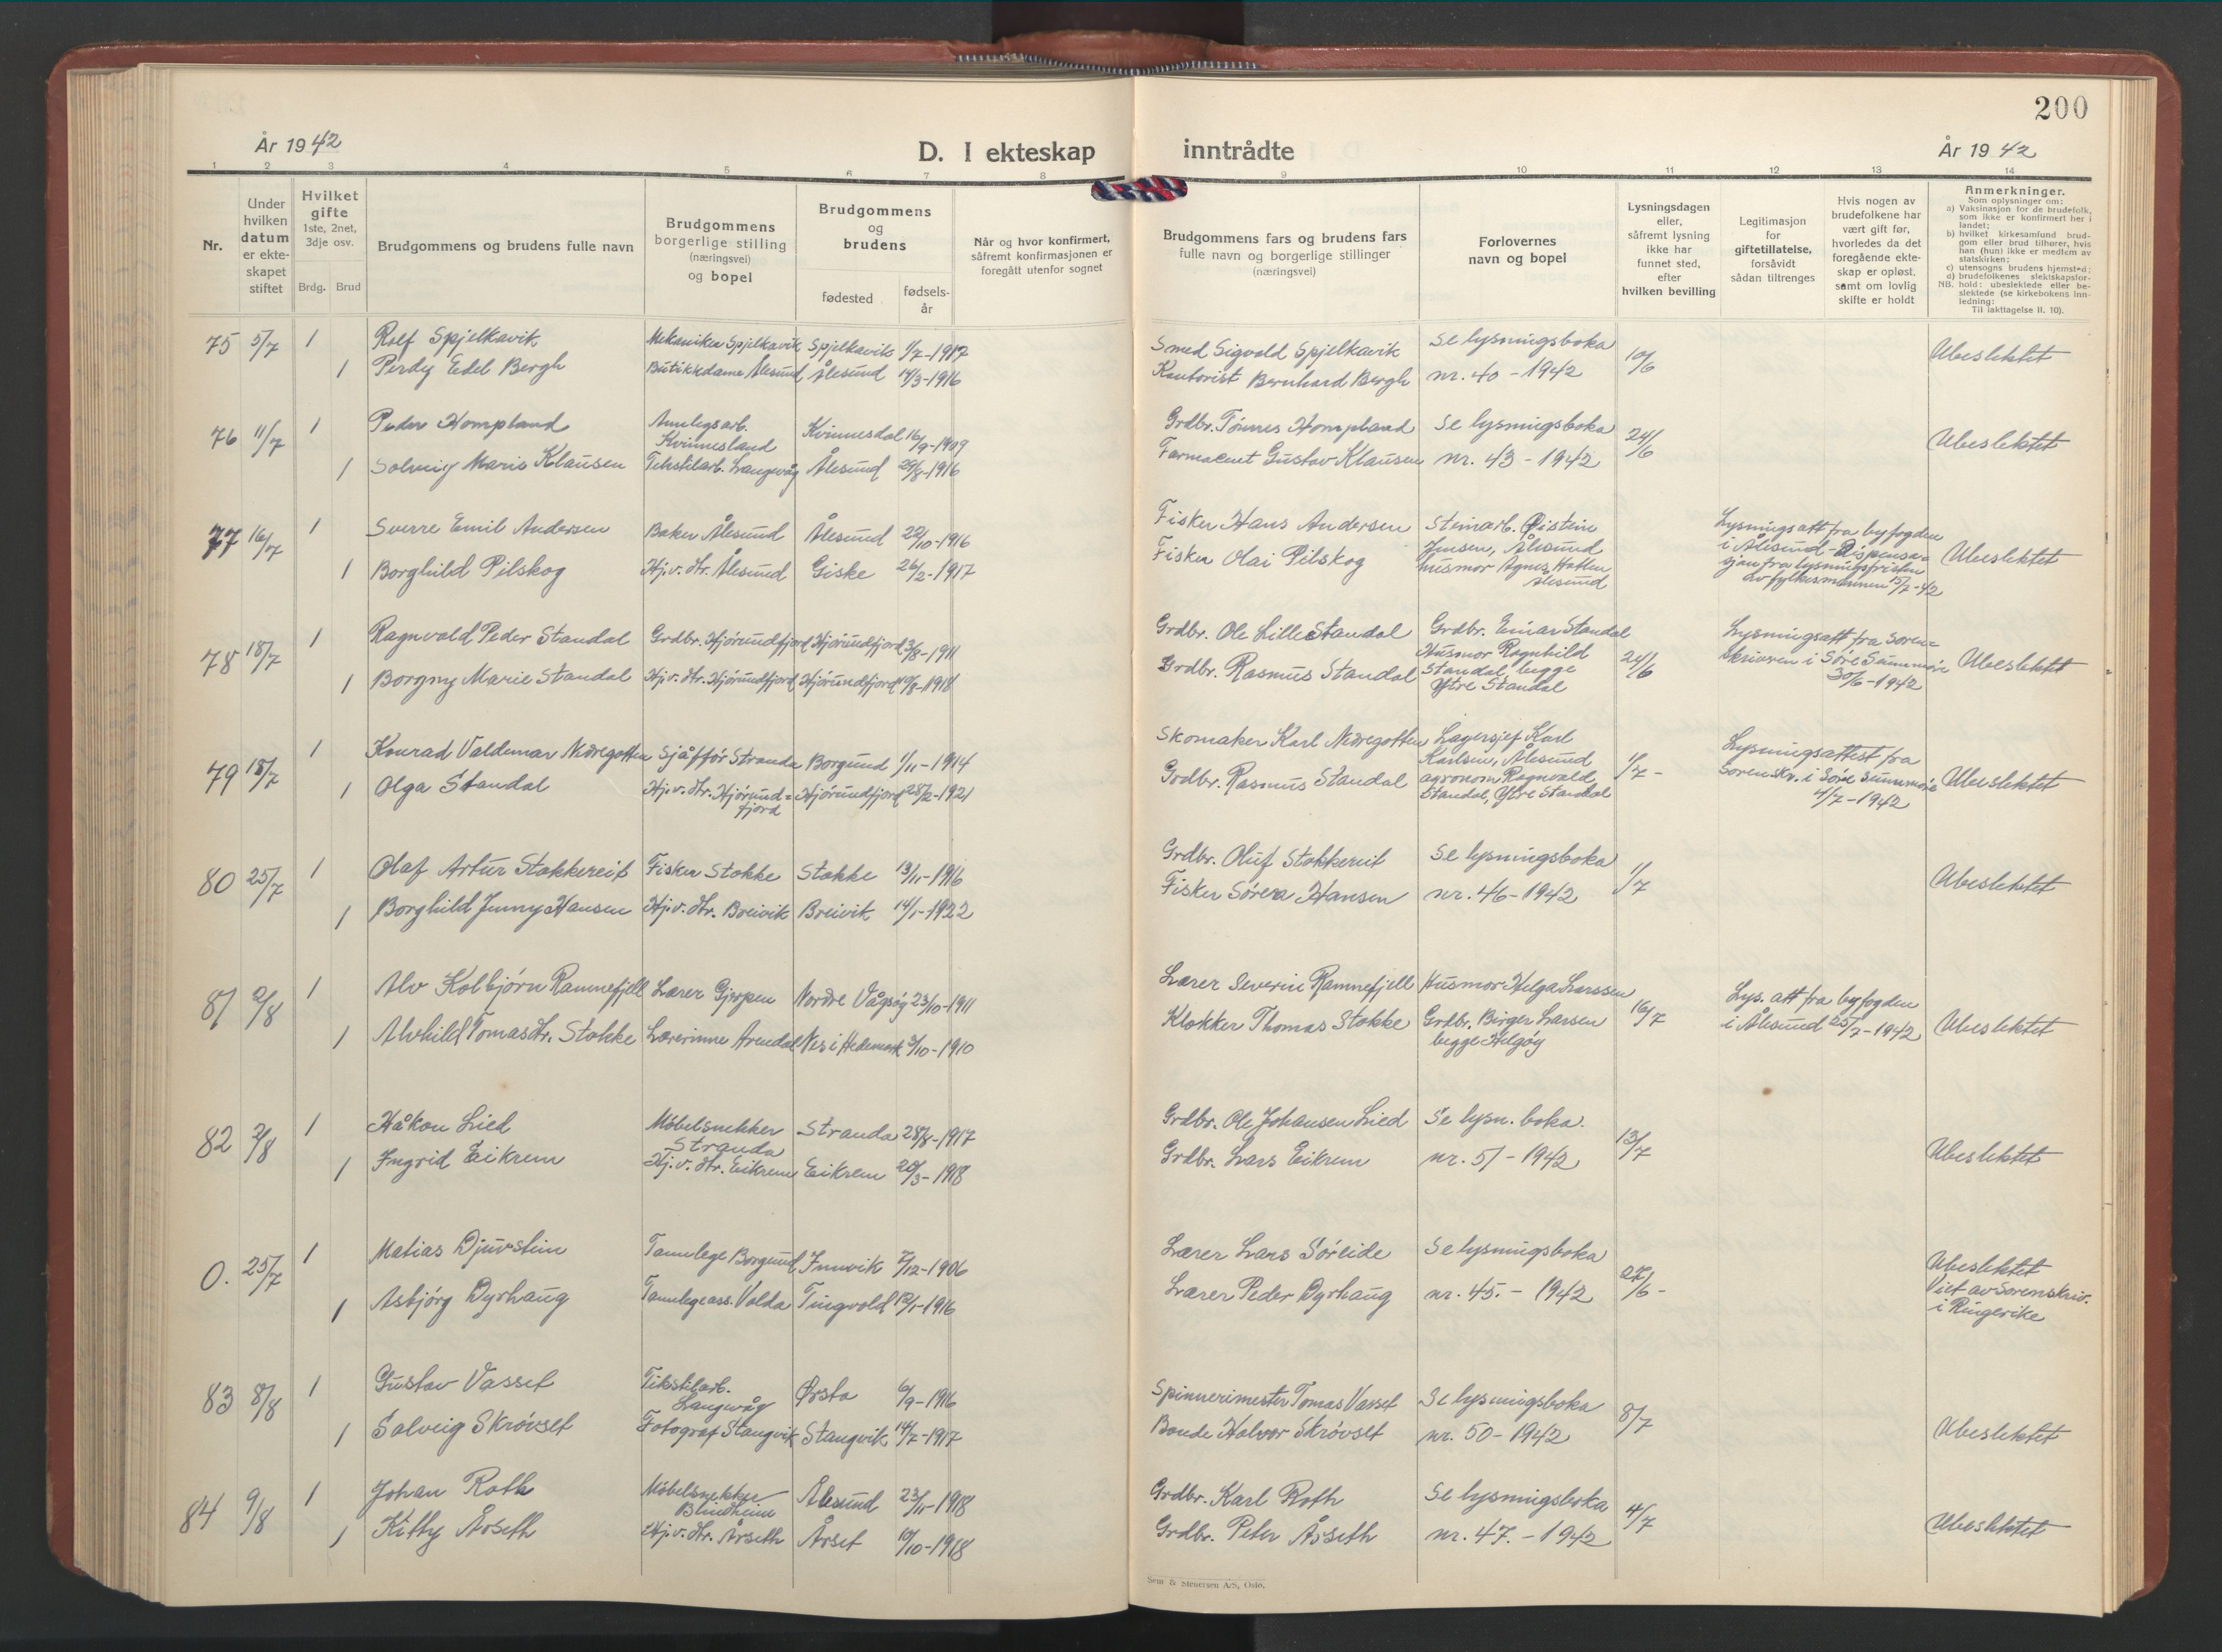 200
År 1942
D. I ekteskap inntrådte
År 1942
1 2 3 4 5 6 7 8 9 10 11 12 13 14
Nr.
Under hvilken datum er ekteskapet stiftet
Hvilket gifte 1ste, 2net, 3dje osv.
Brdg. Brud
Brudgommens og brudens fulle navn
Brudgommens borgerlige stilling (næringsvei) og bopel
Brudgommens og brudens
fødested
fødselsår
Når og hvor konfirmert, såfremt konfirmasjonen er foregått utenfor sognet
Brudgommens fars og brudens fars fulle navn og borgerlige stillinger (næringsvei)
Forlovernes navn og bopel
Lysningsdagen eller, såfremt lysning ikke har funnet sted, efter hvilken bevilling
Legitimasjon for giftetillatelse, forsåvidt sådan tiltrenges
Hvis nogen av brudefolkene har vært gift før, hvorledes da det foregående ekteskap er opløst, samt om lovlig skifte er holdt
Anmerkninger.
Som oplysninger om:
a) Vaksinasjon for de brudefolk, som ikke er konfirmert her i landet;
b) hvilket kirkesamfund brudgom eller brud tilhører, hvis han (hun) ikke er medlem av statskirken;
c) utensogns brudens hjemsted;
d) brudefolkenes slektskapsforhold: ubeslektede eller beslektede (se kirkebokens innledning:
NB.
Til iakttagelse II. 10).
75 5/7 1 Rolf Spjelkavik Mekaniker Spjelkavik Spjelkavik 1/7-1917 Smed Sigvald Spjelkavik Se lysningsboka 10/6 Ubeslektet
1 Perdy Edel Bergh Butikkdame Ålesund Ålesund 14/3-1916 Kontorist Bernhard Bergh nr. 40-1942
76 11/7 1 Peder Hompland Anlegsarb. Kvinnesland Kvinnesdal 16/9-1909 Grdbr. Tønnes Hompland Se lysningsboka 24/6 Ubeslektet
1 Solveig Maris Klausen Tekstilarb. Langevåg Ålesund 29/8-1916 Farmaceut Gustav Klausen nr. 43-1942
77 16/7 1 Sverre Emil Andersen Baker Ålesund Ålesund 22/10-1916 Fisker Hans Andersen Steinarb. Øistein Jensen, Ålesund Lysningsatt fra byfogden i Ålesund - Dispensasjon fra lysningsfristen av fylkesmannen 15/7-42 Ubeslektet
1 Borghild Pilskog Hj.v. dtr. Ålesund Giske 26/2-1917 Fisker Olai Pilskog husmor Agnes Hatlen Ålesund
78 18/7 1 Ragnvald Peder Standal Grdbr. Hjørundfjord Hjørundfjord 3/8-1911 Grdbr. Ole Lille Standal Grdbr. Einar Standal 24/6 Lysningsatt fra sorenskriveren i Søre Sunnmøre 30/6-1942 Ubeslektet
1 Borgny Marie Standal Hj.v. dtr. Hjørundfjord Hjørundfjord 10/8-1918 Grdbr. Rasmus Standal Husmor Ragnhild Standal, begge Ytre Standal
79 18/7 1 Konrad Valdemar Nedregotten Sjåffør Stranda Borgund 1/11-1914 Skomaker Karl Nedregotten Lagersjef Karl Karlsen, Ålesund 1/7- Lysningsattest fra Sorenskr. i Søre Sunnmøre 4/7-1942 Ubeslektet
1 Olga Standal Hj.v. dtr. Hjørundfjord Hjørundfjord 28/2-1921 Grdbr. Rasmus Standal agronom Ragnvald Standal, Ytre Standal
80 25/7 1 Olaf Artur Stokkereit Fisker Stokke Stokke 13/11-1916 Grdbr. Oluf Stokkereit Se lysningsboka 1/7 Ubeslektet
1 Borghild Jenny Hansen Hj.v. dtr. Breivik Breivik 14/1-1922 Fisker Søren Hansen nr. 46-1942
81 2/8 1 Alv Kolbjørn Ramnefjell Lærer Gjerpen Nordre Vågsøy 23/10-1911 Lærer Severin Ramnefjell Husmor Helga Larssen 16/7 Lys. att fra byfogden i Ålesund 25/7-1942 Ubeslektet
1 Alvhild Tomasdtr. Stokke Lærerinne Arendal Nes i Hedemark 3/10-1910 Klokker Thomas Stokke Grdbr. Birger Larsen begge Helgøy
82 2/8 1 Håkon Lied Møbelsnekker Stranda Stranda 28/8-1917 Grdbr. Ole Johansen Lied Se lysn. boka. 13/7 Ubeslektet
1 Ingrid Eikrem Hj.v. dtr. Eikrem Eikrem 20/3-1918 Grdbr. Lars Eikrem nr. 51-1942
0. 25/7 1 Matias Djuvstein Tannlege Borgund Innvik 7/12-1906 Lærer Lars Søreide Se lysningsboka 27/6- Ubeslektet
1 Asbjørg Dyrhaug Tannlegeass. Volda Tingvold 12/1-1916 Lærer Peder Dyrhaug nr. 45.-1942 Viet av Sorenskriv. i Ringerike
83 8/8 1 Gustav Vasset Tekstilarb. Langevåg Ørsta 6/9-1916 Spinnerimester Tomas Vasset Se lysningsboka 8/7 Ubeslektet
1 Salveig Skrøvset Fotograf Stangvik Stangvik 14/7-1917 Bonde Halvor Skrøvset nr. 50-1942
84 9/8 1 Johan Roth Møbelsnekker Blindheim Ålesund 23/11-1918 Grdbr. Karl Roth Se lysningsboka 4/7 Ubeslektet
1 Kitty Årseth Hj.v. dtr. Årseth Årset 10/10-1918 Grdbr. Peter Årseth nr. 47.-1942
Sem & Stenersen A/S, Oslo.